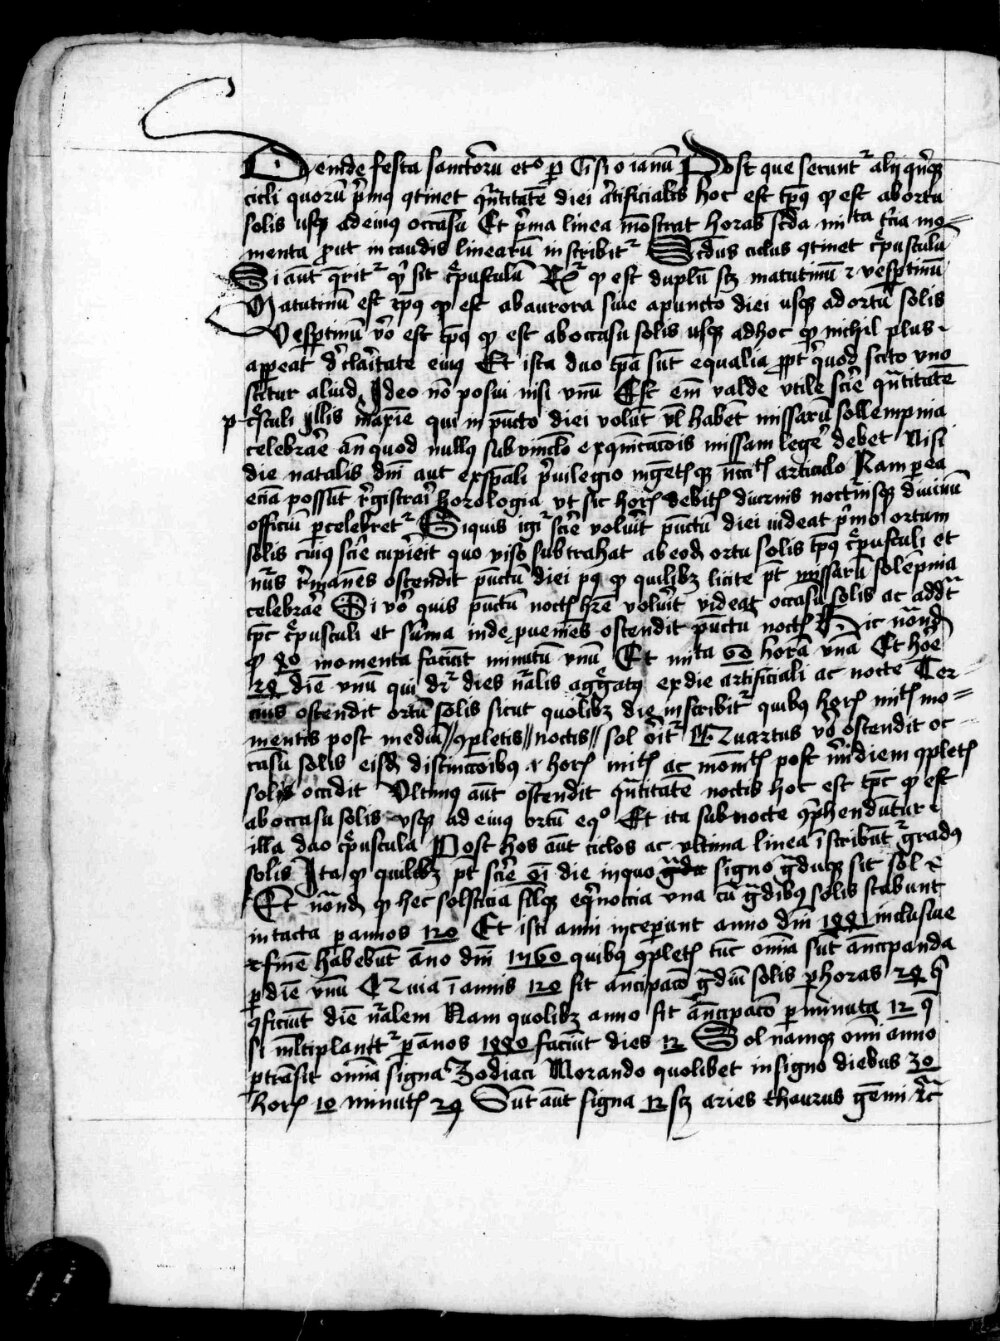 Deinde festa sanctoru etc̃ p Cisio ianu Post que secunt² alij qnq3
cicli quorũ p̃mꝰ ꝯtinet qñtitatẽ diei artificialis hoc est tp̃ꝰ qͥ est abortu
solis usqꝫ ad eiuꝰ occasũ Et p̃ma linea mõstrat horas scđa mi ta tcia mo=
menta put in caudis linearũ inscribit² Scđus ciclus ꝯtinet cp̃usculũ
Si aut q̃rit² qͥ sit cp̃usculũ Rx̃ qͥ est duplũ scꝫ matutinũ ⁊ vesptinũ
Matutinũ est tp̃ꝰ qͥ est ab aurora siue apuncto diei usqꝫ ad ortũ solis
Vesptinũ ṽo est tp̃ꝰ qͥ est aboccasu solis usqꝫ adhoc qͥ nichil plus
appeat d̾ claritate eiuꝰ Et ista duo tp̃a sũt equalia ppt̾ quod scito vno
scitur aliud Ideo nõ posui nisi vnũ Est em̃ valde vtile scire qñtitatẽ
cp̃sculi Illis maxĩe qui in pũcto diei volũt vl̾ habẽt missarũ sollempnia
celebrare an̄ quod nullꝰ sub vinclo excõicacõis missam lege̾ debet Nisi
die natalis dñi aut exspãli puilegio articulo Nam p ea
eciã possũt r̾gistrari horologia vt sic hor debit diurnis nocturnisqꝫ diuinũ
officiũ p celebret² Siquis igr̃ scire voluit pũctũ diei uideat p̃mo ortum
solis cuiꝰ scire cupieit quo viso subtrahat ab eod̃ ortu solis tp̃ꝰ cp̃usculi et
nũs r̾manẽs ostendit pũctũ diei pꝰ qͥ quilibꝫ licite pt̃ missarũ solẽpnia
celebrare Si ṽo quis pũctũ noct hr̃e voluit videat occasũ solis ac addat
tp̃ꝰ cp̃usculi et sũma inde pueniẽs ostendit punctu noct Hic notand̃
qͥ 60 momenta faciũt minutũ vnũ Et mi ta 60 horã vnã Et hore
24 diẽ vnũ qui dr̃ dies nr̃alis aggregatꝰ ex die artificiali ac nocte Ter
cius ostendit ortũ solis sicut quolibꝫ die inscribit² quibꝰ hor mit mo=
mentis post mediũ//ꝯpletis//noctis//sol orit² Quartus ṽo ostendit oc
casũ solis eisd̃ distinccõibus ⁊ hor mit ac momt post mĩdiem ꝯplet
solis occidit Vltimꝰ aũt ostendit qũtitatẽ noctis hoc est tp̃ꝰ qͥ est
aboccasu solis vsqꝫ ad eiuꝰ ortũ eqͦ Et ita sub nocte ꝯphendũtur
illa duo cp̃uscula Post hos aũt ciclos ac vltima linea ĩscribũt² gradꝰ
solis Ita qͥ quilibꝫ pt̃ scire õi die inquo signo g̾duqꝫ sit sol ⁊
Et notand̃ qͥ hec solsticia silʼqꝫ eqnoccia vna cũ g̾dibꝰ solis stabunt
intacta p annos 120 Et isti anni inceperunt anno dñi 1441 inclusiue
⁊ finẽ habebũt ãno dñi 1560 quibꝰ ꝯplet tũc oĩa sũt ãncipanda
p diẽ vnũ Quia ĩ annis 120 fit ãncipacõ g̾duũ solis p horas 24 q̃
ꝯficiũt diẽ nr̃alem Nam quolibꝫ anno fit ãncipacõ p minuta 12 q̃
si mltiplant² p ãnos 1440 faciũt dies 12 Sol namqꝫ oĩni anno
ptransit oĩnia signa Zodiaci Morando quolibet in signo diebus 30
hor 10 minut 24 Sunt aũt signa 12 scꝫ aries thaurus gemi ĩc